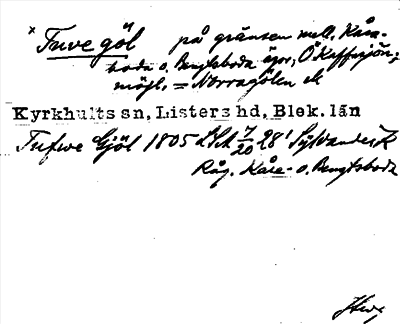 x Tuve göl på gränsen mell. Kåra-
boda o. Bengtsboda ägor, Ö Kaffesjön;
möjl. = Norragölen
Kyrkhults sn, Listers hd, Blek. län
Tufwe Gjöl 1805 LSA 7/20 28' Sylvander K
Råg. Kåra- o. Bengtsboda